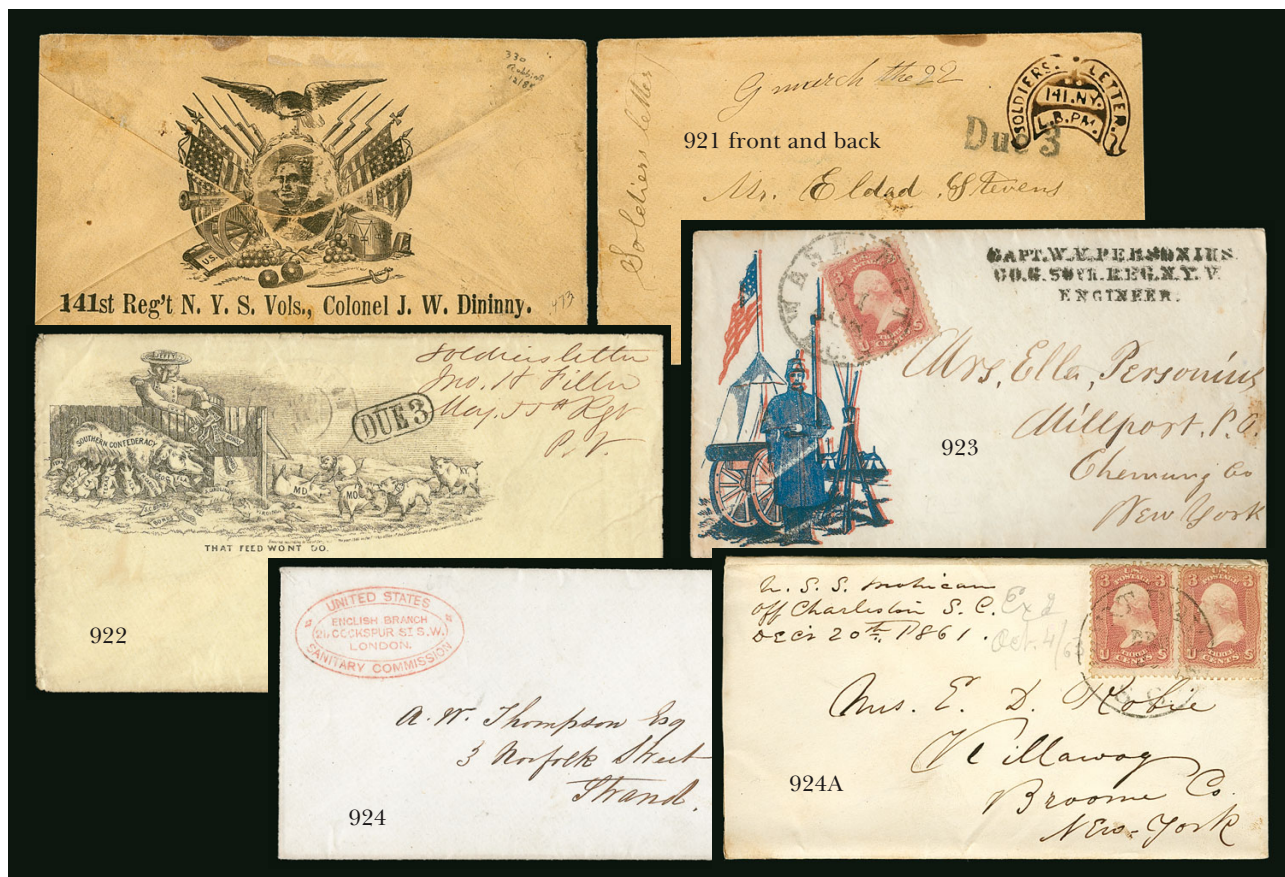 330
12/84
U.S.
141st Reg't N. Y. S. Vols., Colonel J. W. Dininny.
473
Soldiers letter
the 22
921 front and back
SOLDIERS. LETTER.
141. NY.
L.B.P.M.
Due 3
Mr. Eldad Stevens
Soldiers letter
Jno. H Filler
Maj. 55th Rgt
P.V.
DUE 3
SOUTHERN CONFEDERACY
MD
MO
THAT FEED WONT DO.
922
CAPT. W. V. PERSONIUS
CO. G. 50TH. REG. N. Y. V.
ENGINEER.
U THREE CENTS S
Mrs, Ella, Personius
Millport, P.O.
Chemung Co
New York
923
UNITED STATES
ENGLISH BRANCH
21, COCKSPUR ST S.W.
LONDON.
SANITARY COMMISSION
A. W. Thompson Esq
3 Norfolk Street
Strand.
924
U. S. S. Mohican
off Charleston S. C.
Dec'r 20th 1861.
Ex 2
Oct. 4/6
3 POSTAGE 3
U THREE CENTS S
3 POSTAGE 3
U THREE CENTS S
Mrs. E. D. Robie
Killawog
Broome Co.
New-York
924A